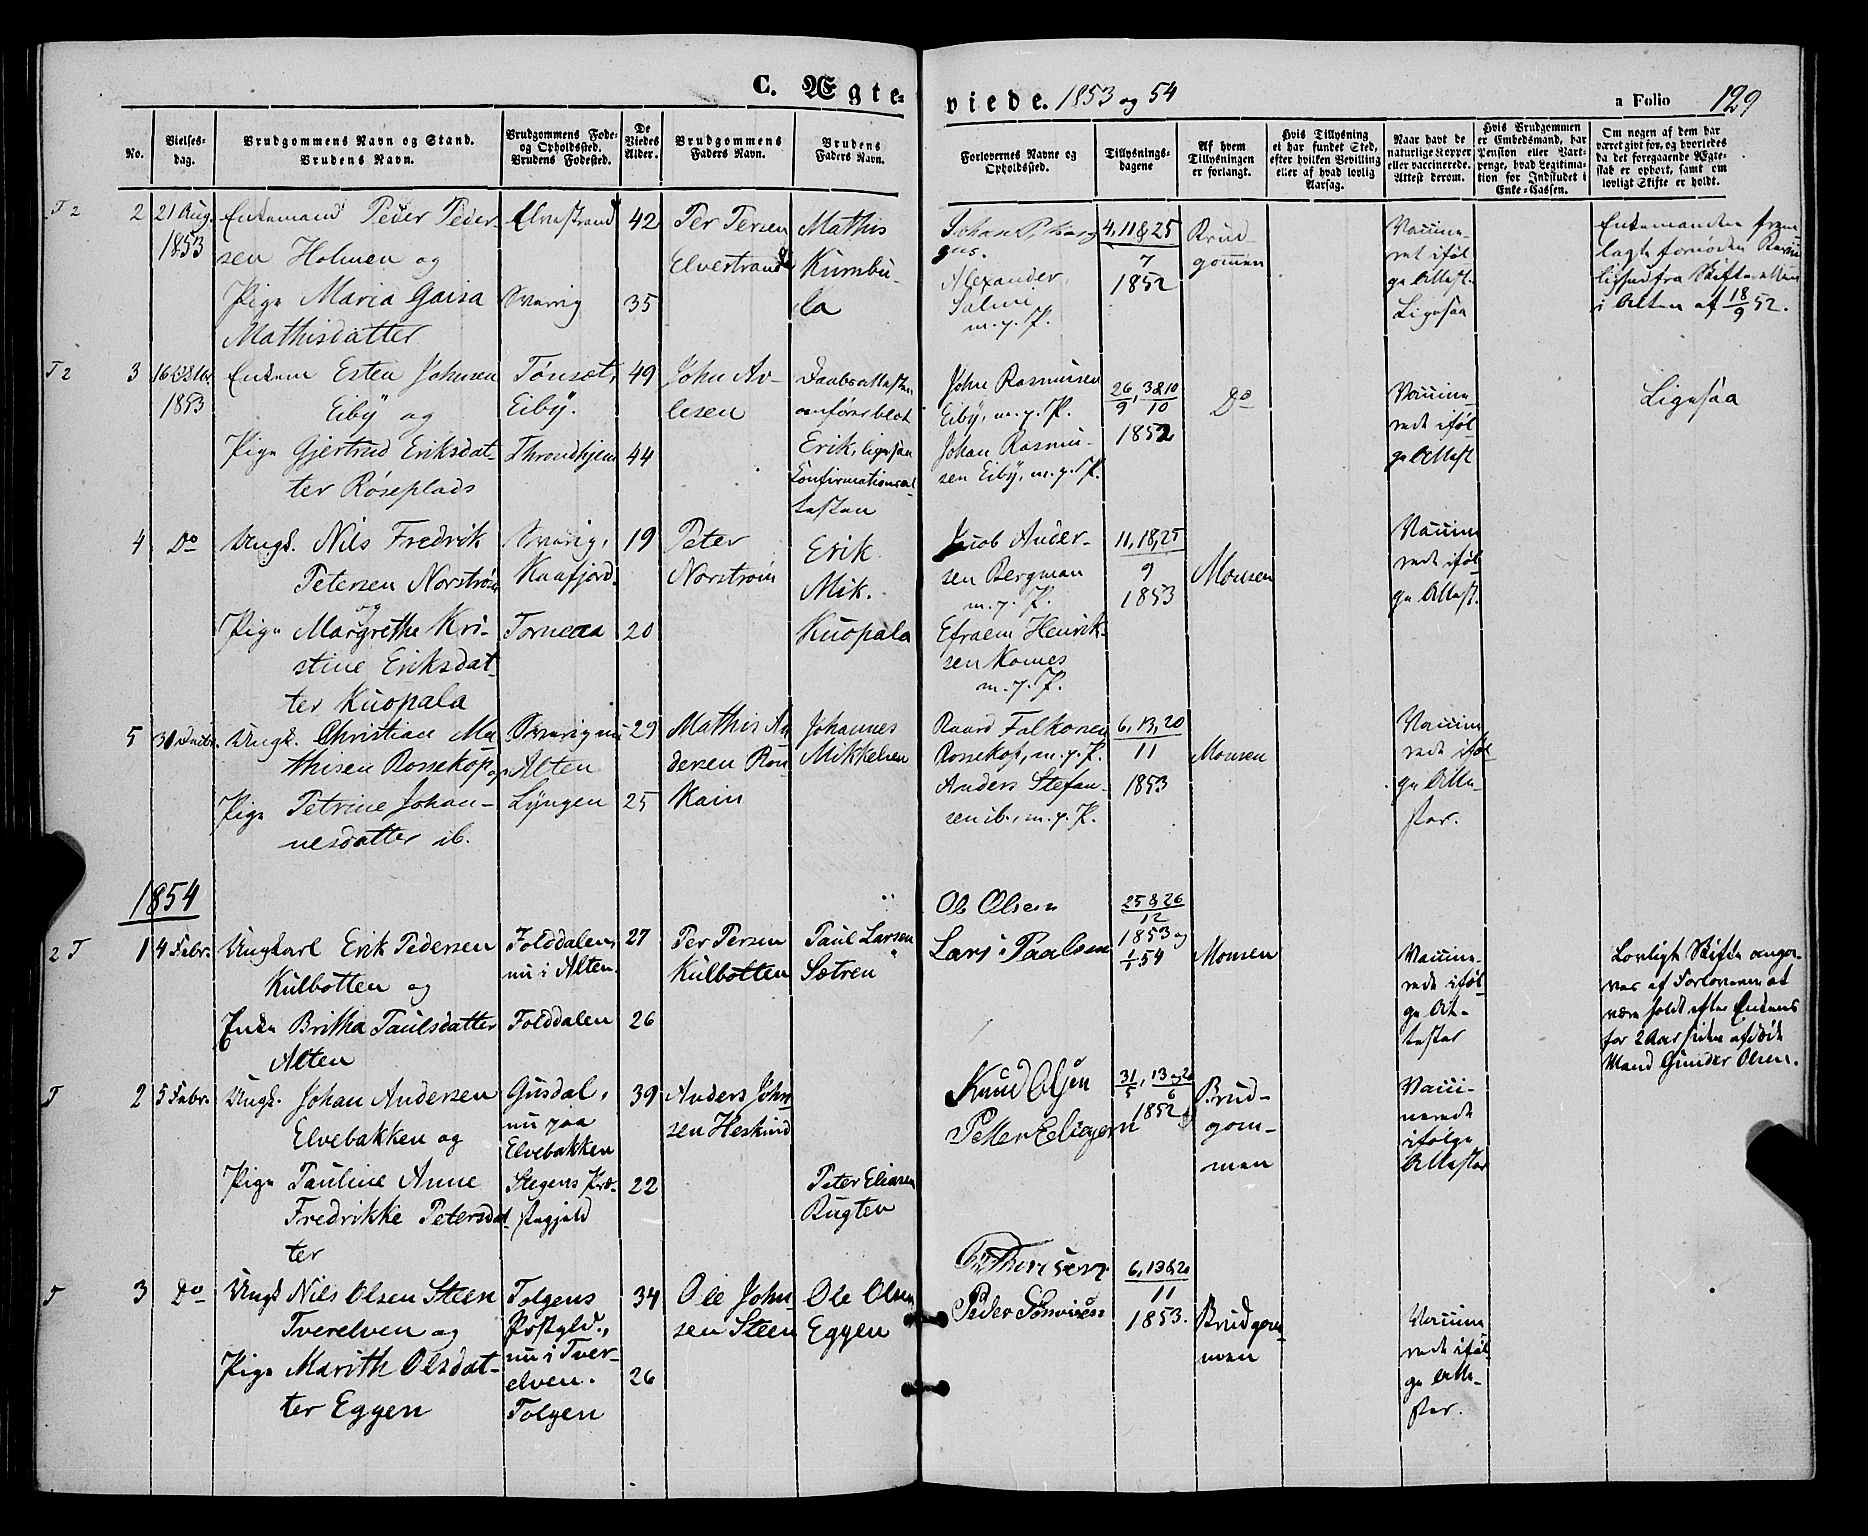 C. Ægte-
viede. 1853 og 54
a Folio 129
No.
Vielses-
dag.
Brudgommens Navn og Stand.
Brudens Navn.
Brudgommens Føde-
og Opholdssted.
Brudens Fødested.
De
Viedes
Alder.
Brudgommens
Faders Navn.
Brudens
Faders Navn.
Forlovernes Navne og
Opholdssted.
Tillysnings-
dagene
Af hvem
Tillysningen
er forlangt.
Hvis Tillysning
ei har fundet Sted,
efter hvilken Bevilling
eller af hvad lovlig
Aarsag.
Naar havt de
naturlige Kopper
eller vaccinerede.
Attest derom.
Hvis Brudgommen
er Embedsmand, har
Pension eller Vart-
penge, hvad Legitima-
tion for Indskudet i
Enke-Cassen.
Om nogen af dem har
været gift før, og hvorledes
da det foregaaende Ægte-
skab er ophørt, samt om
lovligt Skifte er holdt.
T 2
2
21 Aug.
1853
Enkemand Peder Peder-
sen Holmen og
Pige Maria Gaisa
Mathisdatter
Elvestrand
Sverrig
42
35
Per Persen
Elvestrand
Mathis
Kumbu-
la
Johan
Alexander
m. p. P.
4, 11 & 25
7
1852
Brud-
gomen
Vaccine-
ret iføl-
ge Attest.
Ligesaa
Enkemanden frem-
lagte fornøden
fra Skifteretten
i Alten af 18/9 52.
T 2
3
16 Oktbr
1853
Enkem Esten Johnsen
Eiby og
Pige Gjertrud Eriksdat-
ter Røseplads
Tønset,
Eiby.
Throndhjem
49
44
John Av-
lesen
Daabsattesten
anfører blot
Erik, ligesaa
Confirmationsat-
testen
John Rasmusen
Eiby, m. p. P.
Johan Rasmu-
sen Eiby, m. p. P.
26, 3 & 10
9 10
1852
Do
Vaccine-
rede iføl-
ge Attest
Ligesaa
4
Do
Ungk. Nils Fredrik
Petersen Norstrøm
og
Pige Margrethe Kri-
stine Eriksdat-
ter Kuopala
Sverrig,
Kaafjord.
Torneaa
19
20
Peter
Norstrøm
Erik
Mik.
Kuopala
Jacob Ander-
sen Bergman
m. p. P.
Efraem Henrik-
sen Komes
m. p. P.
11, 18, 25
9
1853
Monsen
Vaccine
rede iføl-
ge Attest.
5
Ungk. Christian Ma-
thisen Rossekop og
Pige Petrine Johan-
nesdatter ib.
Sverrig nu
Alten
Lyngen
29
25
Mathis An
dersen Rou
Kain
Johannes
Mikkelsen
Raard Falkonen
Rossekop, m. p. P.
Anders Stefan-
sen ib., m. p. P.
6, 13, 20
11
1853
Monsen
Vaccine
rede iføl
ge Atte-
ster.
1854
2 T
1
4 Febr.
Ungkarl Erik Pedersen
Kulbotten og
Enke Britha Paulsdatter
Alten
Folddalen,
nu i Alten.
Folddalen
27
26
Per Persen
Kulbotten
Paul Larsen
Sætren
Ole Olsen
Lars Paalsen
25 & 26
12
1853 og
1/1 54
Monsen
Vaccine-
rede iføl-
ge At-
tester
Lovligt Skifte angi-
ves af Forloverne at
være holdt efter Enkens
for 2 Aar siden afdøde
Mand Gunder Olsen.
T
2
5 Febr.
Ungk. Johan Andersen
Elvebakken og
Pige Pauline Anne
Fredrikke Petersdat-
ter
Gusdal,
nu paa
Elvebakken
Stegens Præ-
stegjeld
39
22
Anders John
sen Heskind
Peter Eliasen
Bugten
Knud Olsen
Petter Eliasen
31, 13 og 20
5 6
1852
Brud-
gom-
men
Vacci-
nerede
ifølge
Attester
T
3
Do
Ungk Nils Olsen Steen
Tverelven og
Pige Marith Olsdat-
ter Eggen
Tolgens
Pæstgld.,
nu i Tver-
elven.
Tolgen
34
26
Ole John-
sen Steen
Ole Olsen
Eggen
Peder
6, 13 & 20
11
1853.
Brudgom-
men
Vaccine
rede iføl-
ge Atte-
ster.